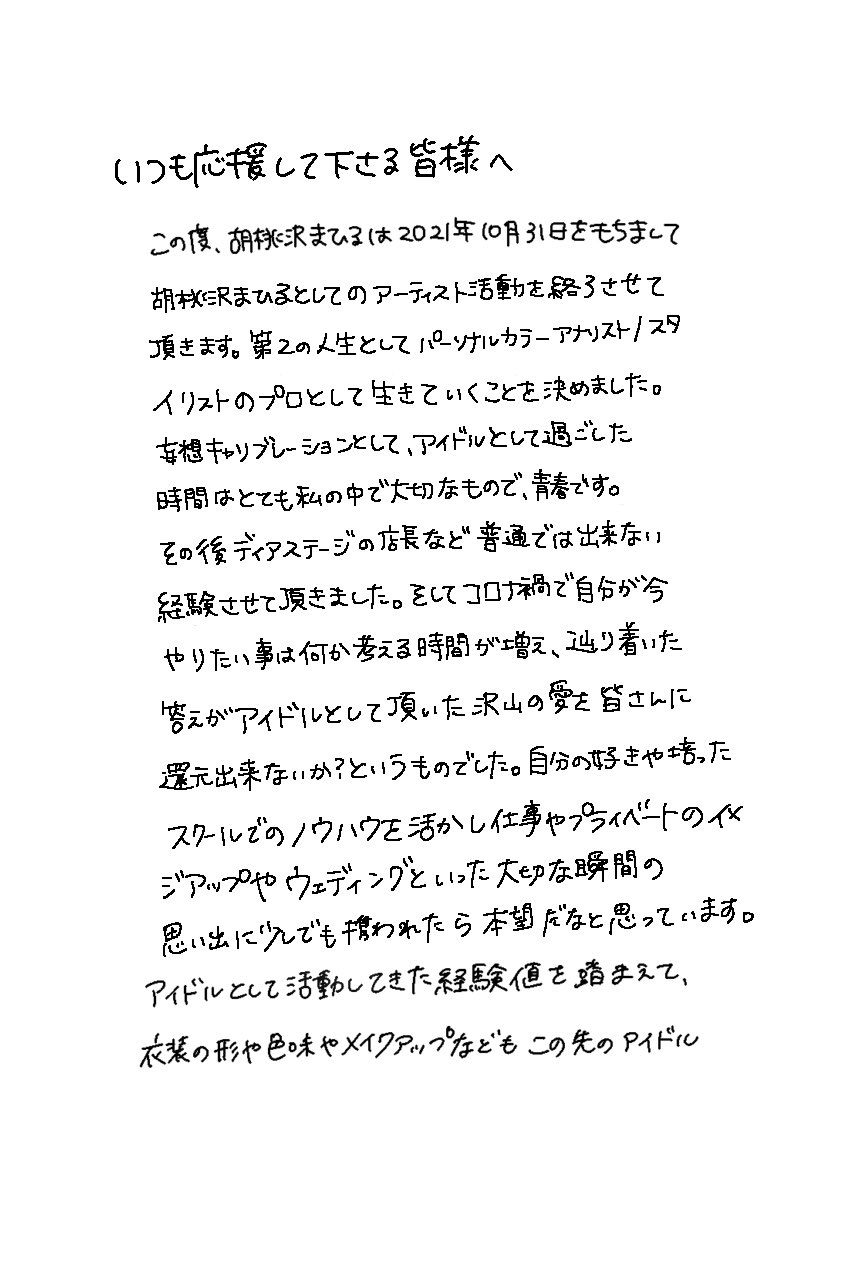 いつも応援して下さる皆様へ
この度、胡桃沢まひるは2021年10月31日をもちまして
胡桃沢まひるとしてのアーティスト活動を終了させて
頂きます。第2の人生としてパーソナルカラーアナリスト/スタ
イリストのプロとして生きていくことを決めました。
妄想キャリブレーションとして、アイドルとして過ごした
時間はとても私の中で大切なもので、青春です。
その後ディアステージの店長など普通では出来ない
経験させて頂きました。そしてコロナ禍で自分が今
やりたい事は何か考える時間が増え、辿り着いた
答えがアイドルとして頂いた沢山の愛を皆さんに
還元出来ないか?というものでした。自分の好きや培った
スクールでのノウハウを活かし仕事やプライベートのイメ
ジアップやウェディングといった大切な瞬間の
思い出に少しでも携われたら本望だなと思っています。
アイドルとして活動してきた経験値を踏まえて、
衣装の形や色味やメイクアップなどもこの先のアイドル